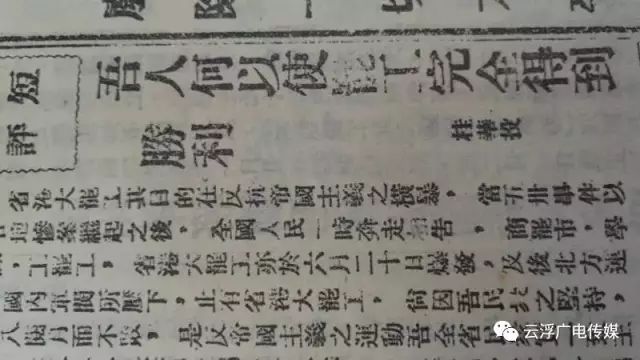 短評
吾人何以使罷工完全得到
勝利
桂華投
省港大罷工其目的在反抗帝國主義之橫暴，當五卅事件以
慘案繼起之後，全國人民一時奔走相告，商罷市，學
，工罷工，省港大罷工亦於六月二十日爆發，及後北方運
國內軍閥所壓下，止有省港大罷工，何因吾民族之堅持，
八個月而不散，是反帝國主義之運動吾全省民
云浮广电传媒